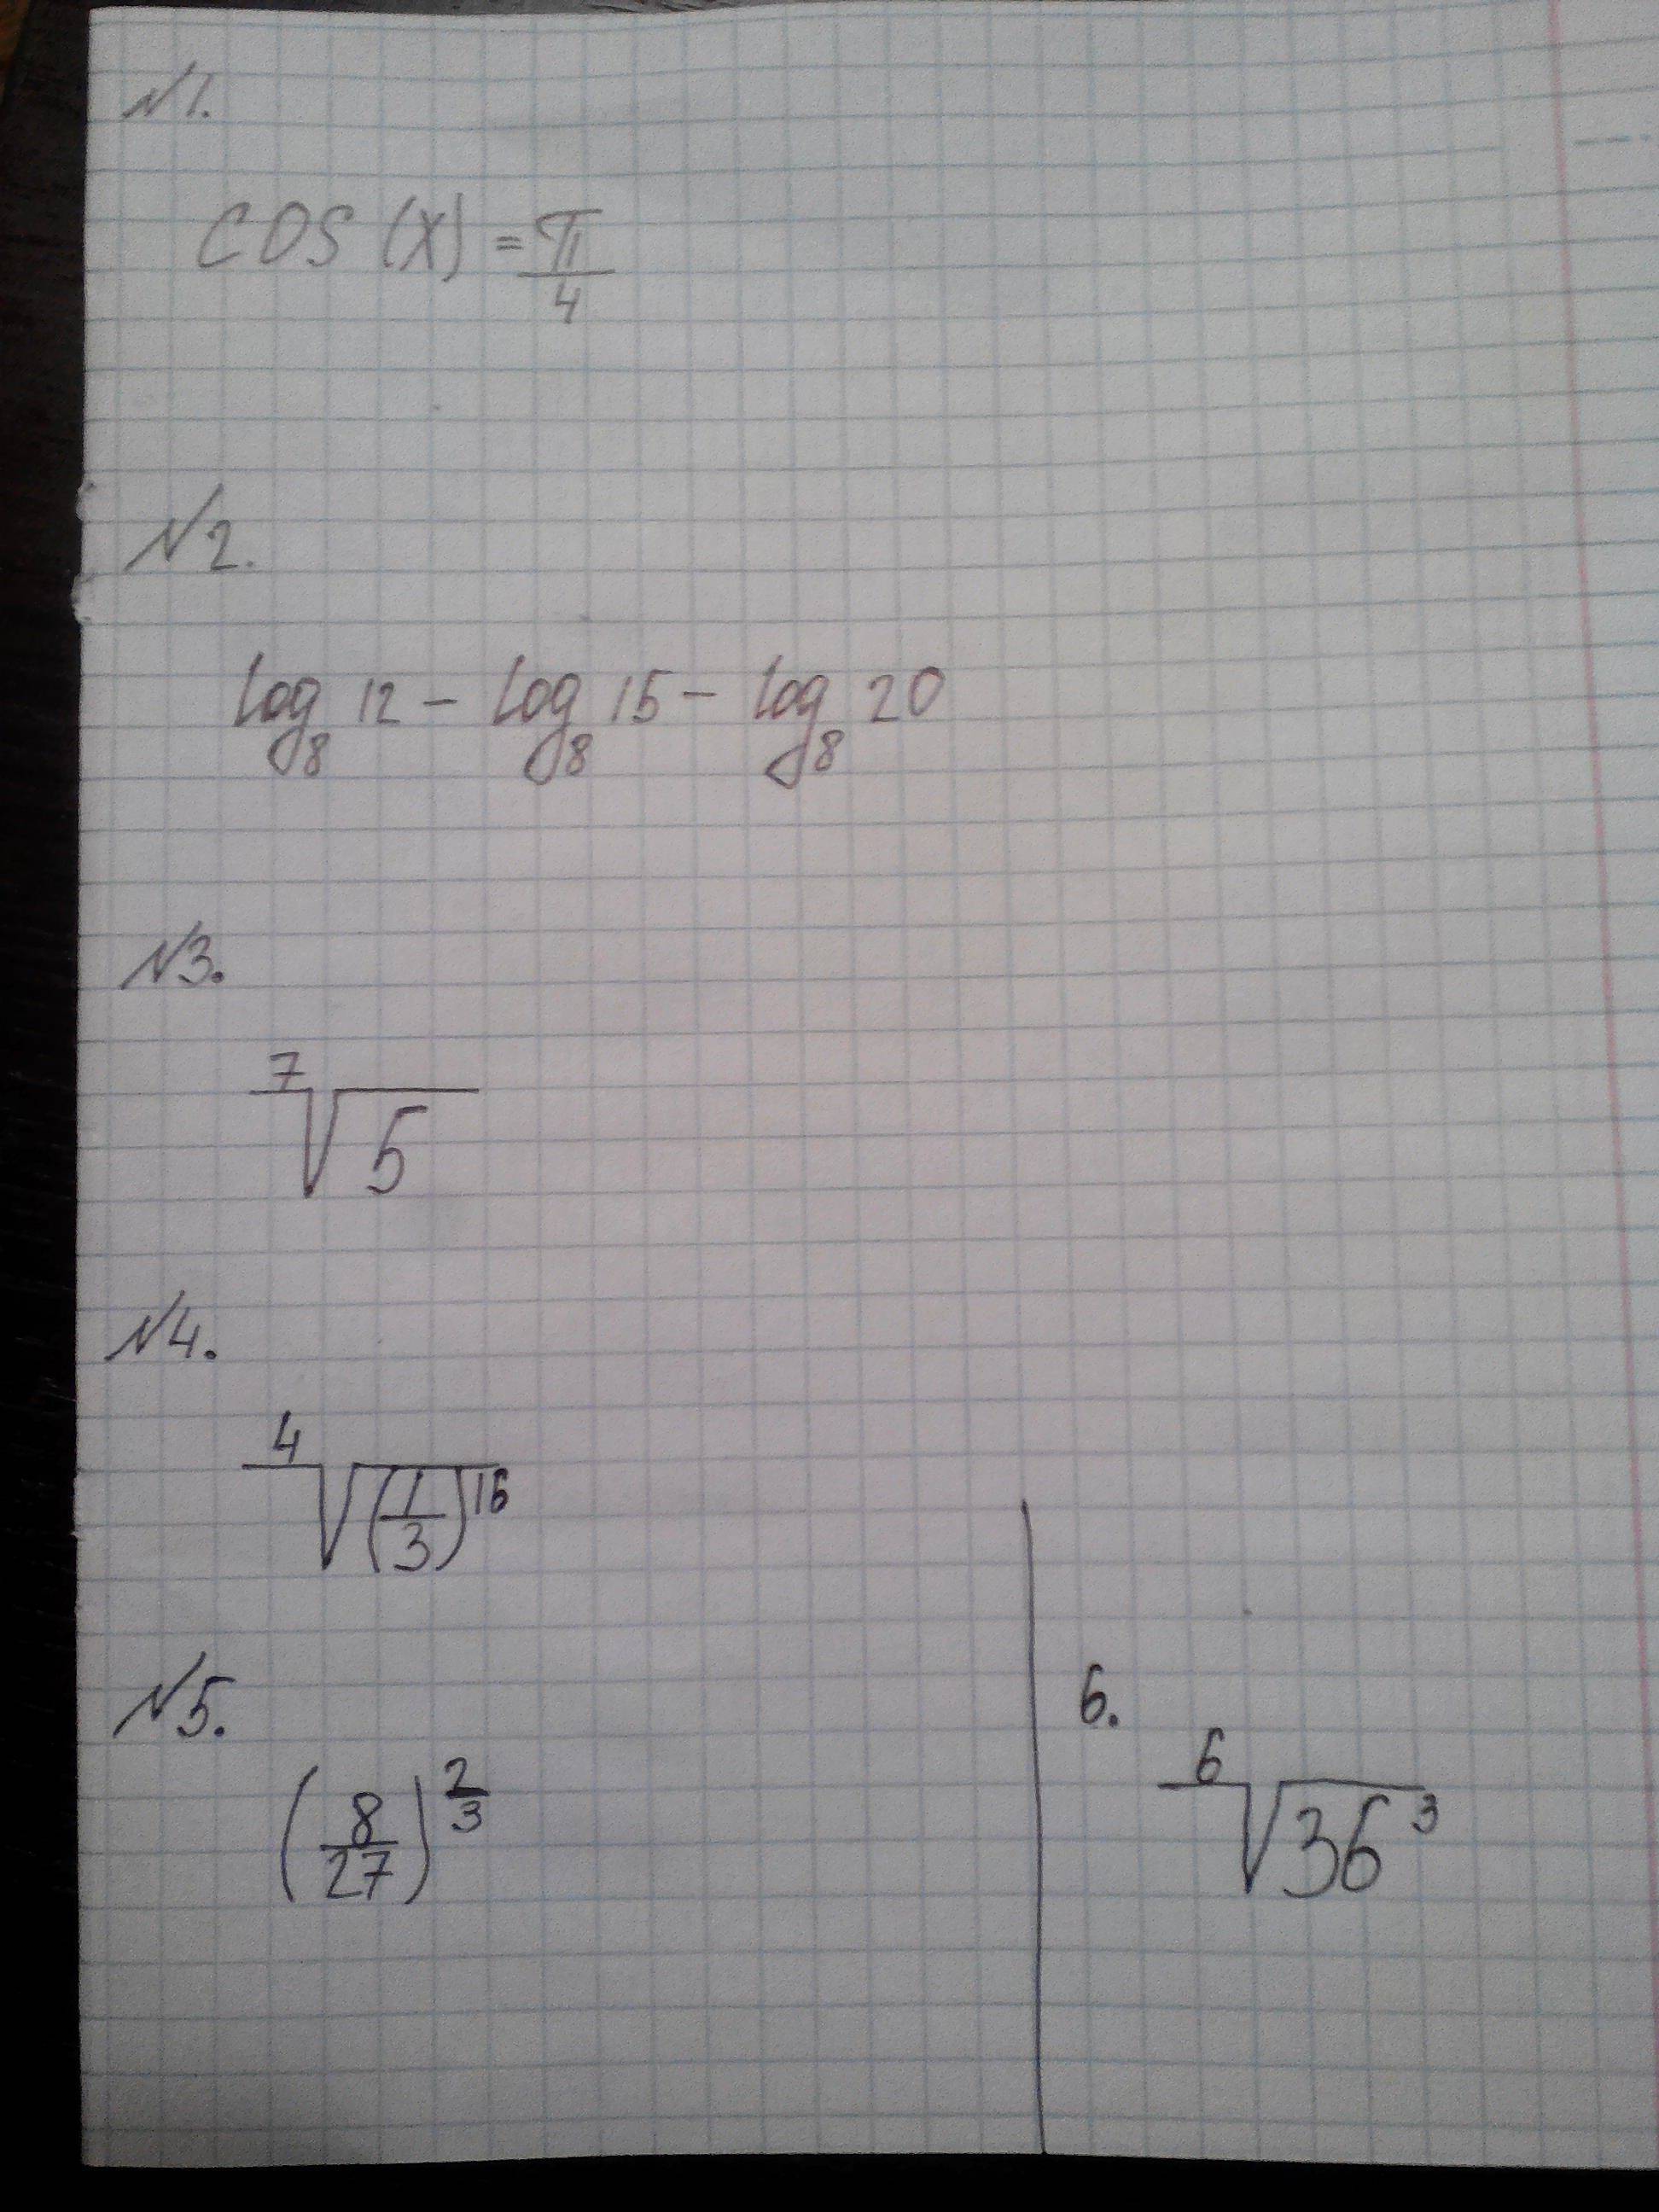 №1.
cos(x) = π/4
№2.
log₈ 12 - log₈ 15 - log₈ 20
№3.
⁷√5
№4.
⁴√(1/3)¹⁶
№5.
(8/27)^(2/3)
6.
⁶√36³